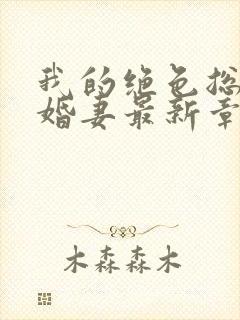 我的绝色总
婚妻最新章
木森森木